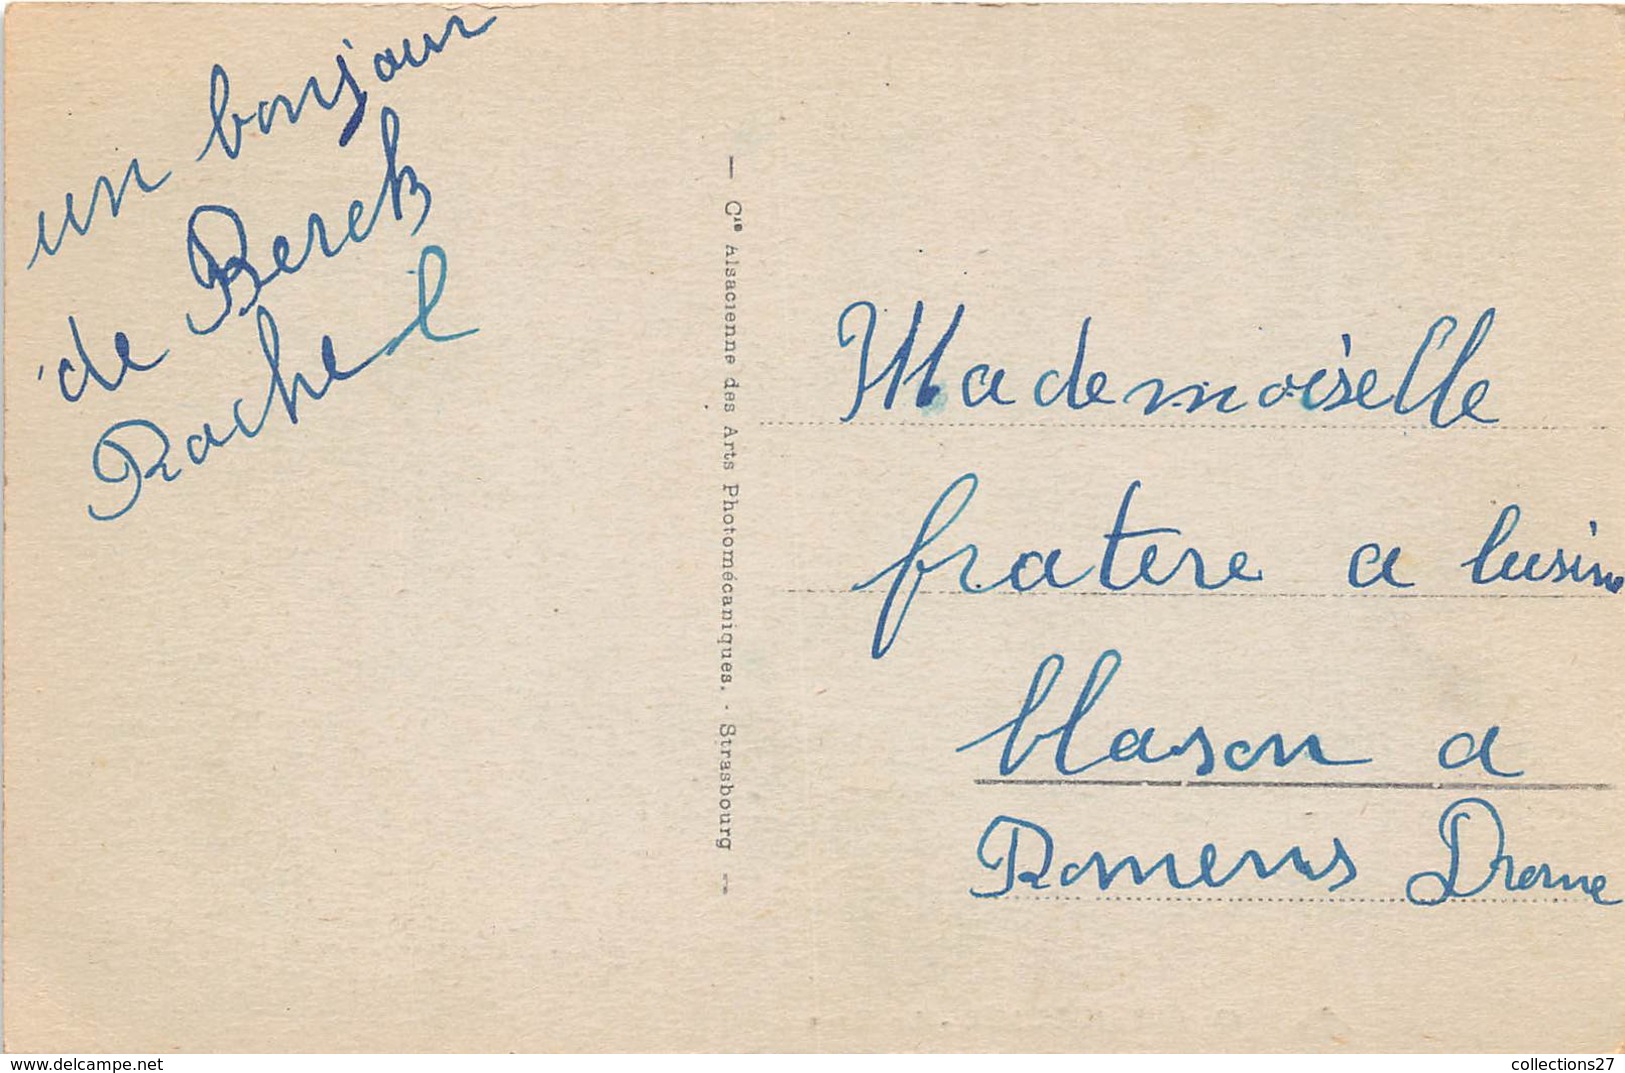 un bonjour
de Berck
Rachel
— Cie Alsacienne des Arts Photomécaniques. - Strasbourg —
Mademoiselle
fratere a lusine
blason a
Romens Drome
www.delcampe.net
collections27